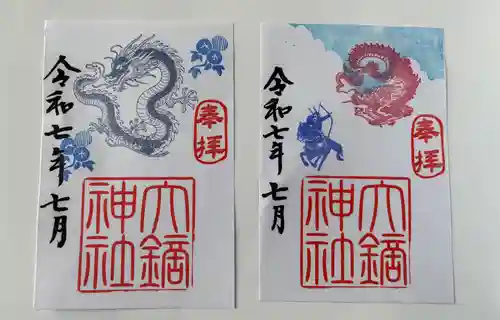 奉拝
令和七年七月
六鏑
神社
奉拝
令和七年七月
六鏑
神社